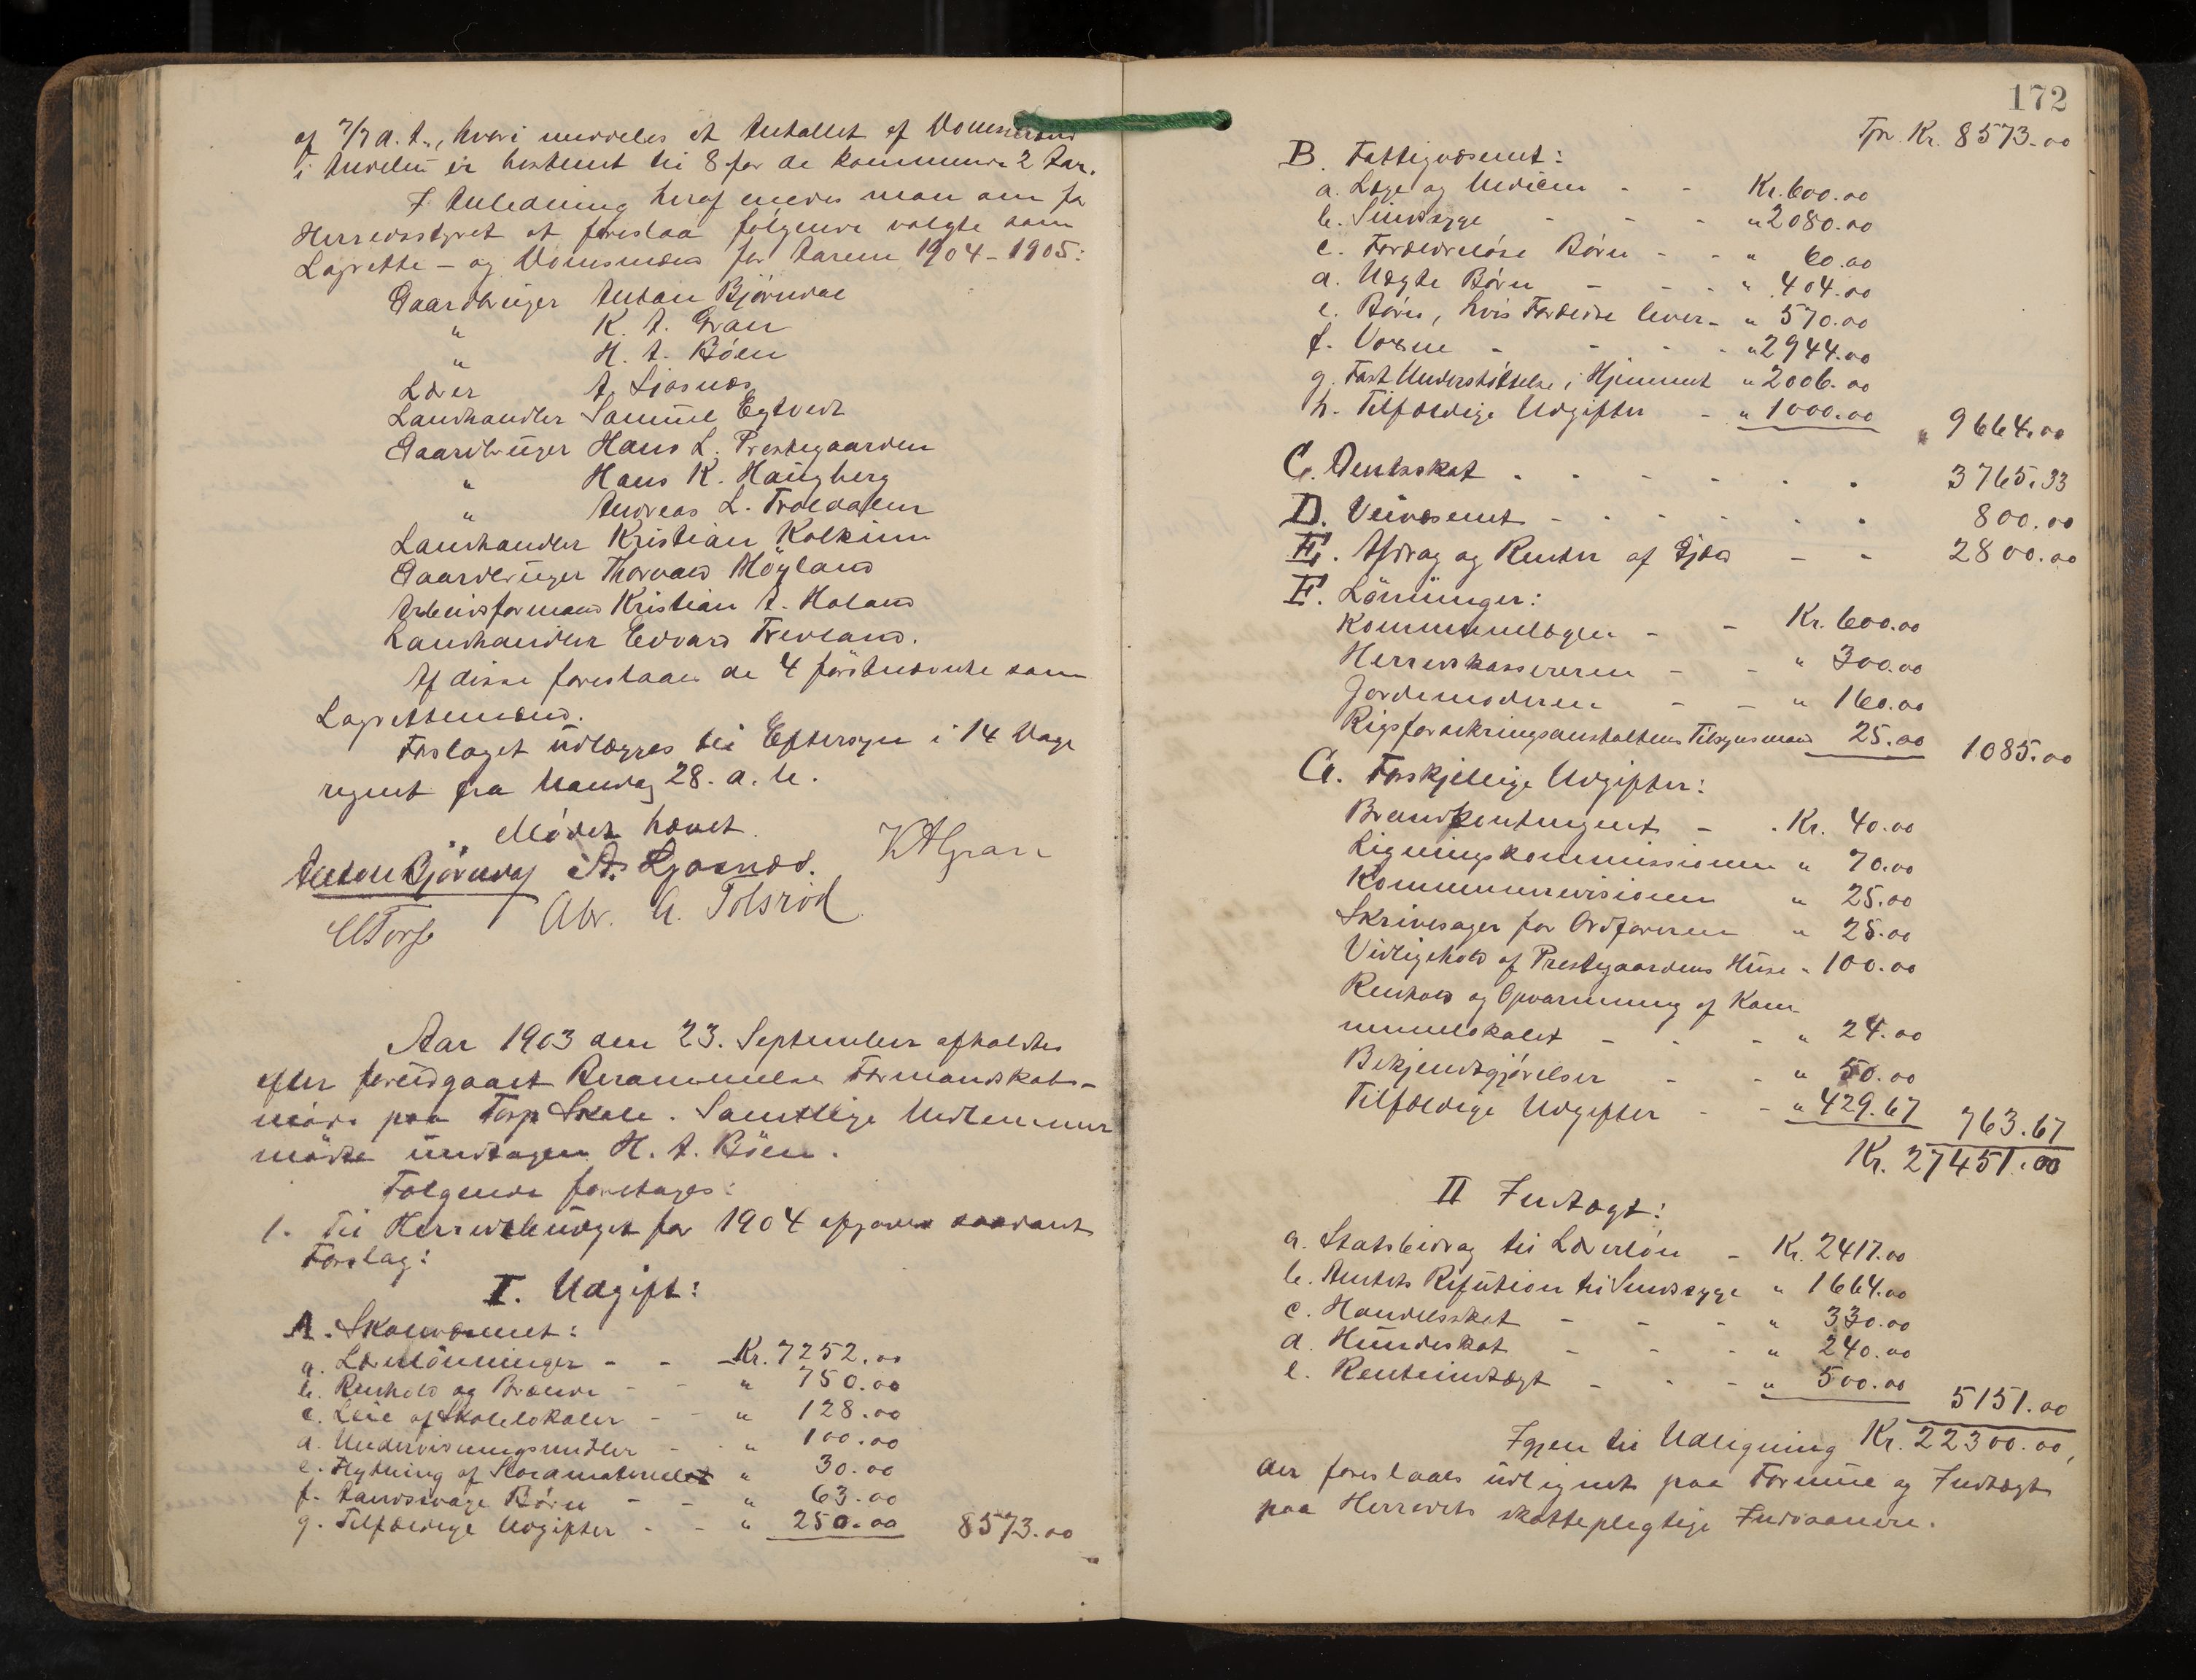 af 7/7 d. A., hvori meddeles at Antallet af Domsmænd
i Andebu er bestemt til 8 for de kommende 2 Aar.
I Anledning heraf enedes man om for
Herredsstyret at foreslaa følgende valgte som
Lagrette- og Domsmænd for Aarene 1904-1905:
Gaardbruger Anton Bjørndal
" K. A. Gran
" H. A. Böen
Lærer A. Ljosnæs
Landhandler Samuel Egtvedt
Gaardbruger Hans L. Prestegaarden
" Hans K. Haugberg
" Andreas L. Troldalen
Landhandler Kristian Kolkinn
Gaardbruger Thorvald Höyland
Arbeidsformand Kristian A. Holand
Landhandler Edvard Trevland.
Af disse foreslaaes de 4 förstnævnte som
Lagrettemænd.
Forslaget udlægges til Eftersyn i 14 Dage
regnet fra Mandag 28. d. M.
Mödet hævet.
Anton Bjørndal A. Ljosnæs. KAGran
Abr. A. Tolsrød
Aar 1903 den 23. September afholdtes
efter forudgaaet Berammelse Formandskabs-
möde paa Torp Skole. Samtlige Medlemmer
mödte undtagen H. A. Böen.
Fölgende foretages:
1. Til Herredsbudget for 1904 afgaves saadant
Forslag:
I. Udgift:
A. Skolevæsenet:
a. Lærerlönninger - - Kr. 7252.00
b. Renhold og Brænde - - " 750.00
c. Leie af Skolelokaler - - " 128.00
d. Undervisningsmidler - - " 100.00
e. Flytning af Skolemateriellet " 30.00
f. Aandssvage Børn - - " 63.00
g. Tilfældige Udgifter - - " 250.00 8573.00
172
Tpr. Kr. 8573.00
B. Fattigvæsenet:
a. Læge og Medicin - - Kr. 600.00
b. Sindssyge - - - " 2080.00
c. Forældreløse Børn - - " 60.00
d. Uægte Børn - - - " 404.00
e. Børn, hvis Forældre lever - " 570.00
f. Voxne - - - - " 2944.00
g. Fast Understöttelse i Hjemmet " 2006.00
h. Tilfældige Udgifter - " 1000.00 " 9664.00
C. Amtsskat - - - - - - 3765.33
D. Veivæsenet - - - - - - 800.00
E. Afdrag og Renter af Gjæld - - 2800.00
F. Lönninger:
Kommunelægen - - Kr. 600.00
Herredskassereren - - " 300.00
Jordemoderen - - " 160.00
Rigsforsikringsanstaltens Tilsynsmand 25.00 1085.00
G. Forskjellige Udgifter:
Brandkontingent - - Kr. 40.00
Ligningskommissionen " 70.00
Kommunerevisionen " 25.00
Skrivesager for Ordföreren " 25.00
Vedligehold af Prestegaardens Huse " 100.00
Renhold og Opvarmning af Kom-
munelokalet - - - " 24.00
Bekjendtgjörelser - - " 50.00
Tilfældige Udgifter - - " 429.67 763.67
Kr. 27451.00
II Indtægt:
a. Statsbidrag til Lærerlön - Kr. 2417.00
b. Amtets Refusion til Sindssyge " 1664.00
c. Handelsskat - - - " 330.00
d. Hundeskat - - - " 240.00
e. Renteindtægt - - - " 500.00 5151.00
Igjen til Udligning Kr. 22300.00,
der foreslaaes udlignet paa Formue og Indtægt
paa Herredets skattepligtige Indvaanere.